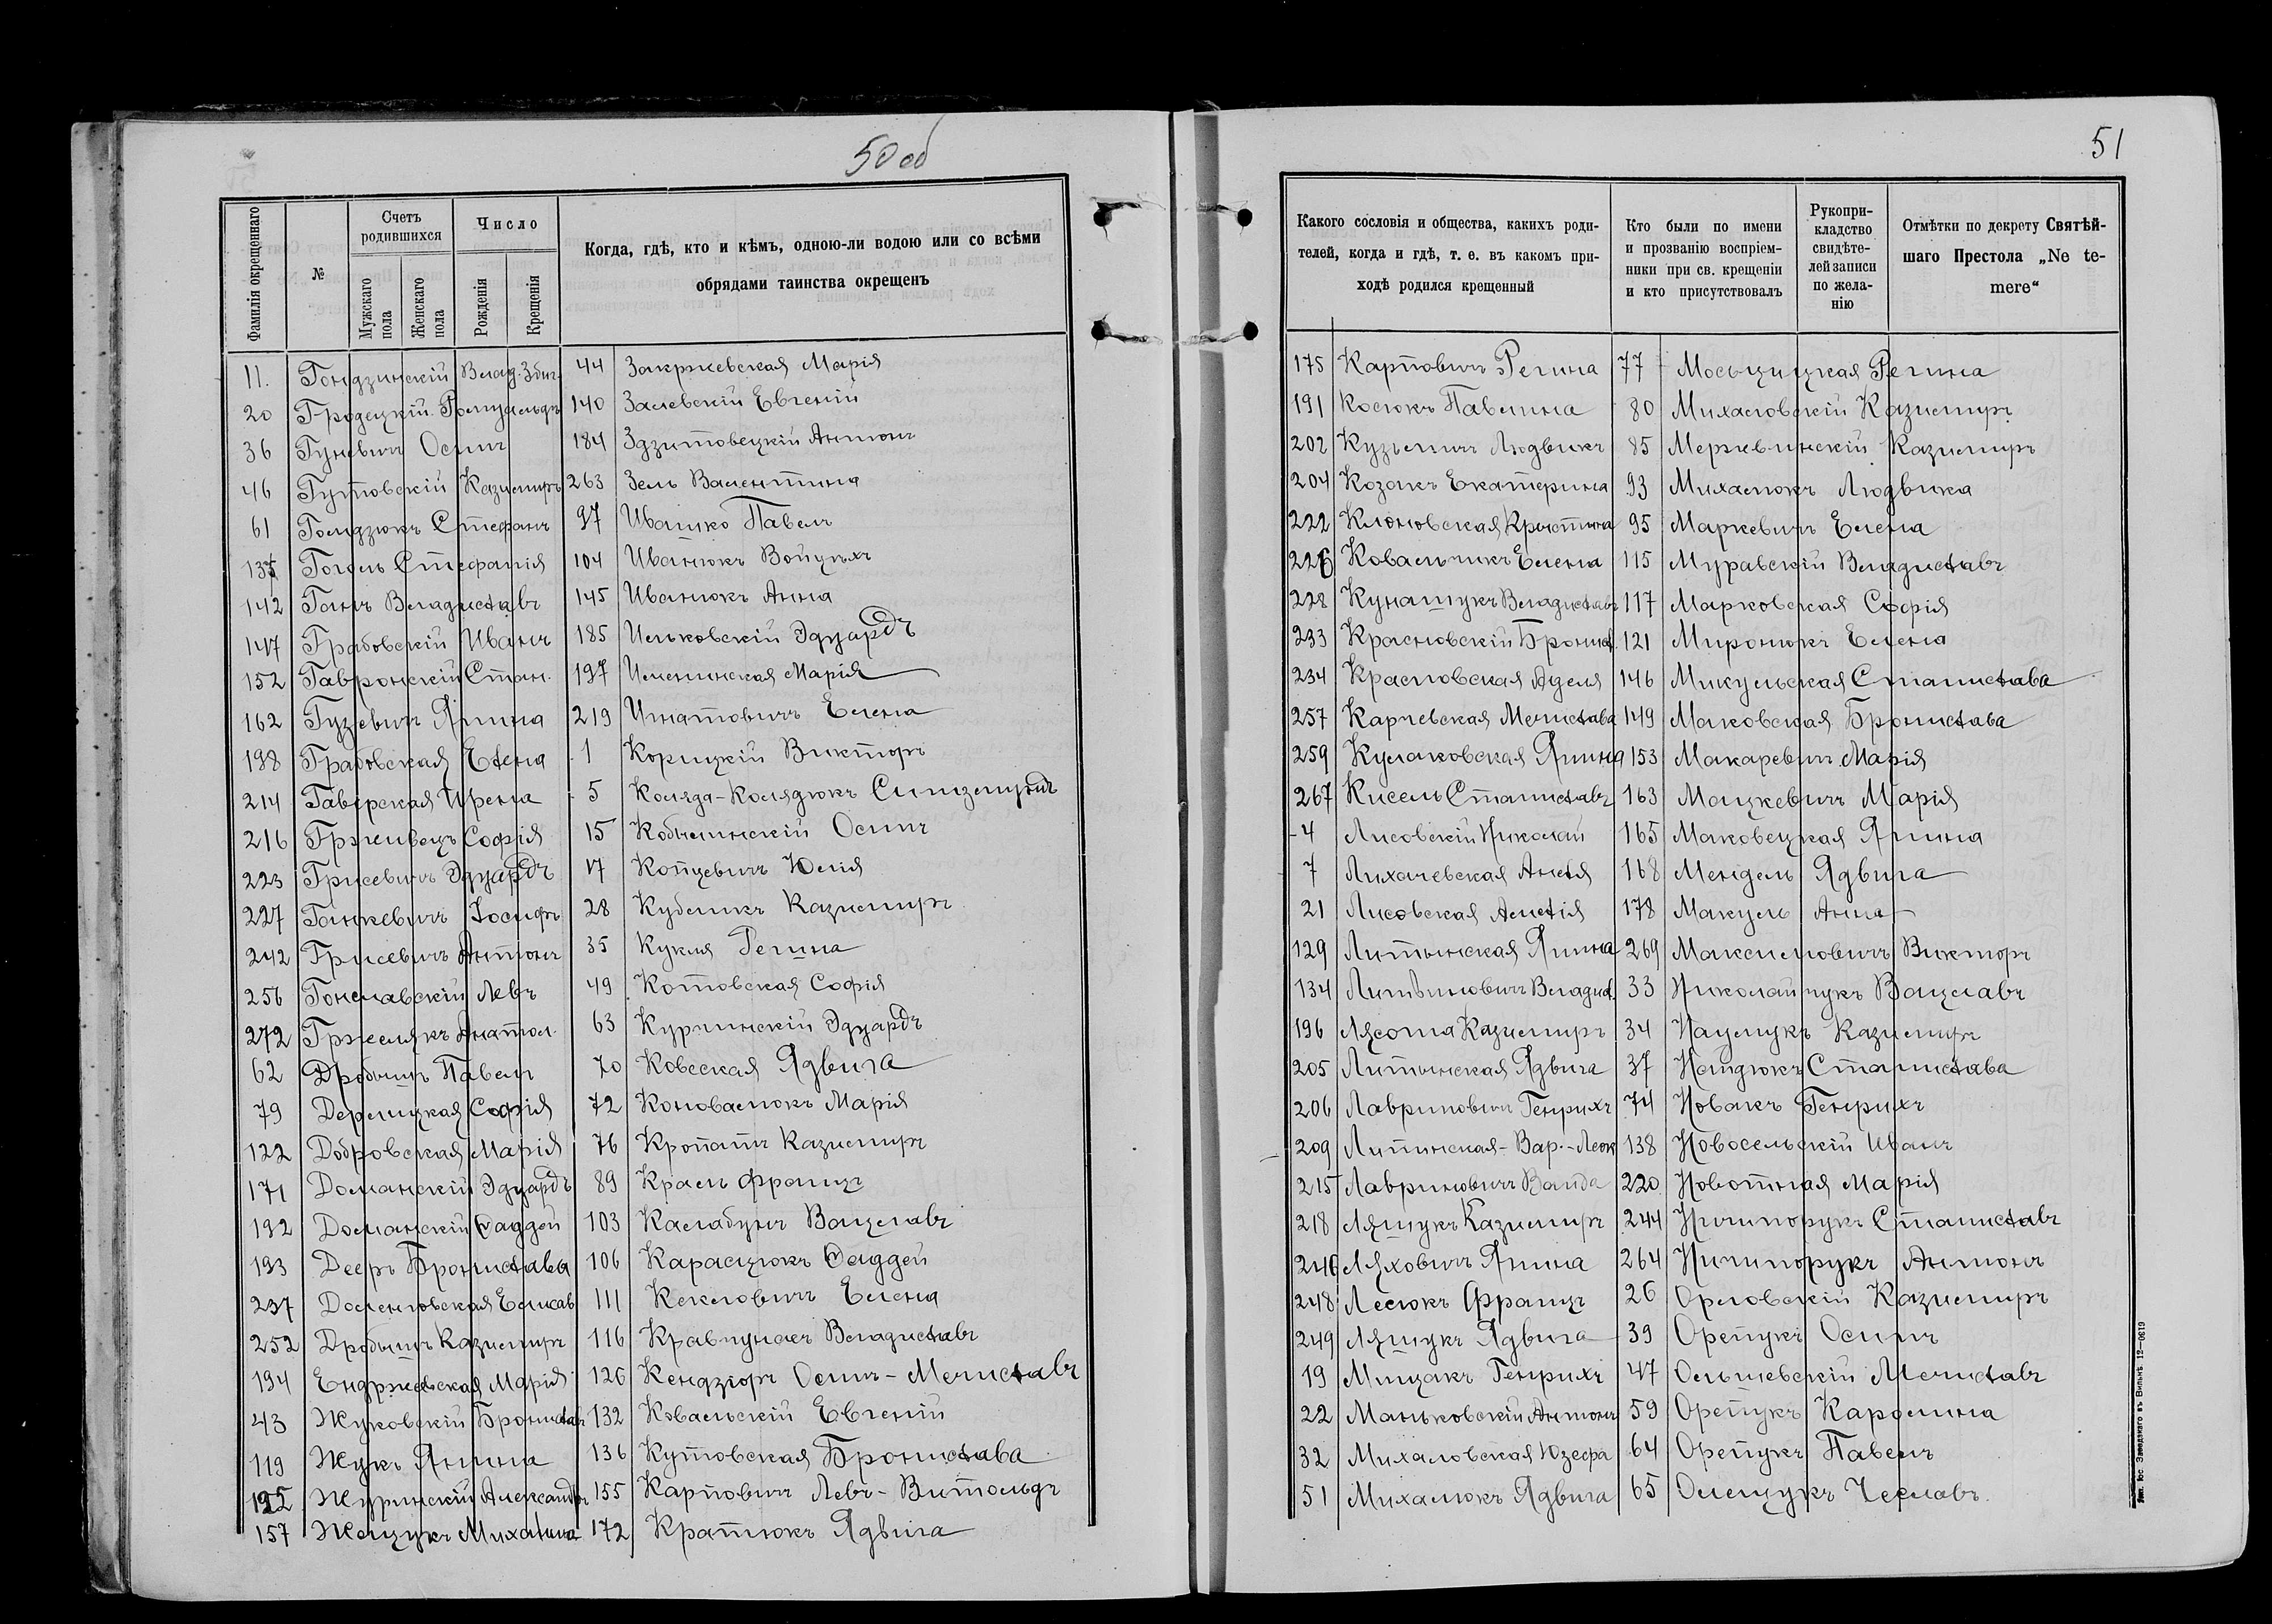 50 об
Фамилія окрещеннаго
№
Счетъ родившихся
Мужскаго пола
Женскаго пола
Число
Рожденія
Крещенія
Когда, гдѣ, кто и кѣмъ, одною-ли водою или со всѣми
обрядами таинства окрещенъ
11. Гондзинскій Влад. Збиг.
20 Гродецкій Ромуальдъ
36 Гуневичъ Осипъ
46 Гутовскій Казимиръ
61 Голидзюкъ Стефанъ
135 Гоголь Стефанія
142 Ганъ Владиславъ
147 Грабовскій Иванъ
152 Гавронскій Стан.
162 Гузевичъ Янина
198 Грабовская Елена
214 Гавёрская Ирена
216 Грживецъ Софія
223 Грисевичъ Эдуардъ
227 Ганкевичъ Іосифъ
242 Грисевичъ Антонъ
256 Гонславскій Левъ
272 Гржелякъ Анатол.
62 Дробышъ Павелъ
79 Деремицкая Софія
122 Добровская Марія
171 Доманскій Эдуардъ
192 Доманскій Фаддей
193 Дееръ Бронислава
237 Доленговская Елисав
252 Дробышъ Казимиръ
194 Ендржевская Марія
43 Жуковскій Брониславъ
119 Жукъ Янина
125 Журинскій Александръ
157 Жещукъ Михалина
44 Закржевская Марія
140 Залевскій Евгеній
184 Здзитовецкій Антонъ
263 Зель Валентина
97 Ивашко Павелъ
104 Иванюкъ Войцѣхъ
145 Иванюкъ Анна
185 Ильковскій Эдуардъ
197 Именинская Марія
219 Игнатовичъ Елена
1 Корицкій Викторъ
5 Коляда-Колядюкъ Сигизмундъ
15 Кобылинскій Осипъ
17 Копцевичъ Юлія
28 Кубликъ Казимиръ
35 Кукля Регина
49 Котовская Софія
63 Курчинскій Эдуардъ
70 Ковеская Ядвига
72 Коновалюкъ Марія
76 Кропатъ Казимиръ
89 Краль Францъ
103 Калабунъ Вацлавъ
106 Карасцюкъ Фаддей
111 Кекловичъ Елена
116 Кравчунакъ Владиславъ
126 Кендзюръ Осипъ-Мечиславъ
132 Ковальскій Евгеній
136 Кутовская Бронислава
155 Карповичъ Левъ-Витольдъ
172 Кратюкъ Ядвига
51
Какого сословія и общества, какихъ роди-
телей, когда и гдѣ, т. е. въ какомъ при-
ходѣ родился крещенный
Кто были по имени
и прозванію воспріем-
ники при св. крещеніи
и кто присутствовалъ
Рукопри-
кладство
свидѣте-
лей записи
по жела-
нію
Отмѣтки по декрету Святѣй-
шаго Престола „Ne te-
mere“
175 Карповичъ Регина
191 Косюкъ Павлина
202 Кузьмичъ Людвикъ
204 Козакъ Екатерина
222 Клоновская Крыстина
226 Ковальчикъ Елена
228 Кунашукъ Владиславъ
233 Красновскій Бронисл.
234 Красновская Аделя
257 Карчевская Мечислава
259 Кулаковская Янина
267 Кисель Станиславъ
4 Лисовскій Николай
7 Лихачевская Анеля
21 Лисовская Амелія
129 Литынская Янина
134 Литвиновичъ Владисл.
196 Лясота Казимиръ
205 Литынская Ядвига
206 Лавриновичъ Генрихъ
209 Липинская-Вар.-Леок
215 Лавриновичъ Ванда
218 Ляшукъ Казимиръ
246 Ляховичъ Янина
248 Лесюкъ Францъ
249 Ляшукъ Ядвига
19 Мицакъ Генрихъ
22 Маньковскій Антонъ
32 Михаловская Юзефа
51 Михалюкъ Ядвига
77 Мосьцицкая Регина
80 Михаловскій Казимиръ
85 Мержвинскій Казимиръ
93 Михалюкъ Людвика
95 Маркевичъ Елена
115 Муравскій Владиславъ
117 Марковская Софія
121 Миронюкъ Елена
146 Микульская Станислава
149 Маковская Бронислава
153 Макаревичъ Марія
163 Мацкевичъ Марія
165 Маковецкая Янина
168 Мендель Ядвига
178 Макуль Анна
269 Максимовичъ Викторъ
33 Николайчукъ Вацлавъ
34 Наумукъ Казимиръ
37 Нейдюкъ Станислава
74 Новакъ Генрихъ
138 Новосельскій Иванъ
220 Новотная Марія
244 Ничипорукъ Станиславъ
264 Ничипорукъ Антонъ
26 Орловскій Казимиръ
39 Орепукъ Осипъ
47 Ольшевскій Мечиславъ
59 Орепукъ Каролина
64 Орепукъ Павелъ
65 Олещукъ Чеславъ.
Тип. Іос. Завадзкаго въ Вильнѣ 12—0619